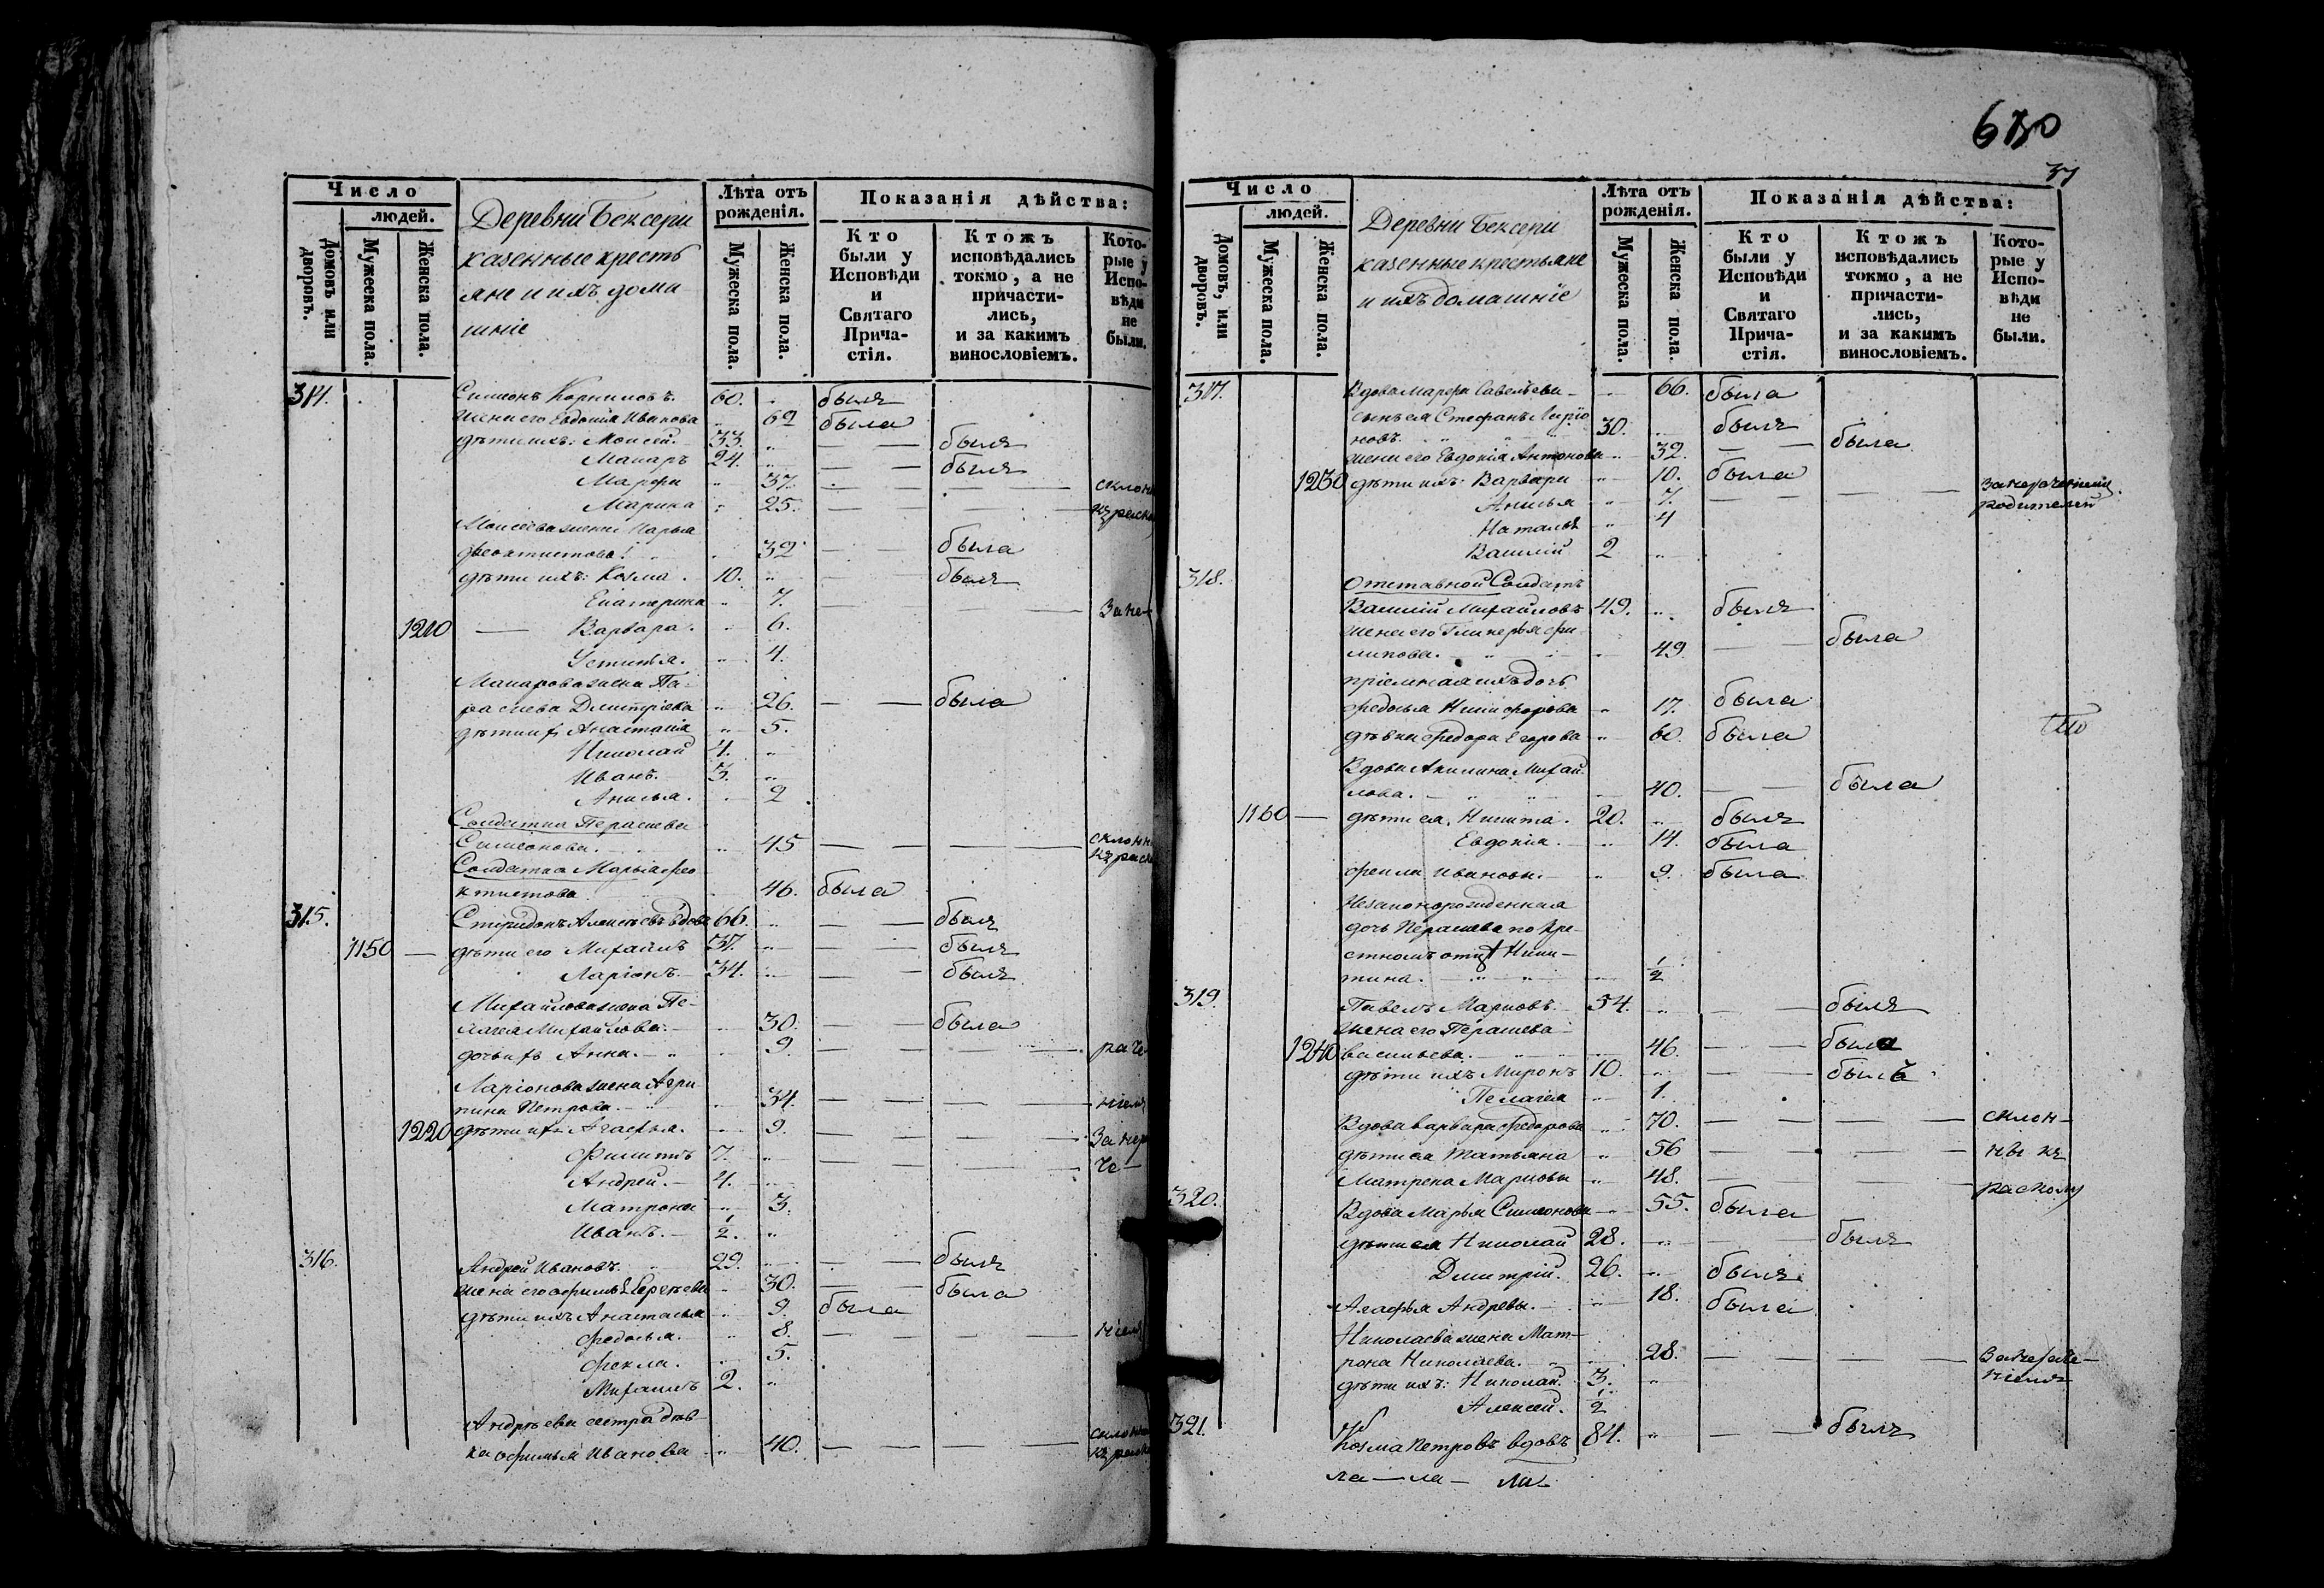 Число
людей.
Домовъ или дворовъ.
Мужеска пола.
Женска пола.
Деревни Бексери
казенные кресть
яне и ихъ дома
шніе
Лѣта отъ рожденія.
Мужеска пола.
Женска пола.
Показанія дѣйства:
Кто были у Исповѣди и Святаго Причастія.
Ктожъ исповѣдались токмо, а не причастились, и за какимъ винословіемъ.
Которые у Исповѣди не были.
314. Симионъ Корниловъ. 60. былъ
жена его Евдокія Иванова 62 была
дѣти ихъ: Моисей. 33. былъ
Макаръ 24. былъ
Марфа 37. склон
Марина 25. къ раск
Моисеева жена Марья
Феоктистова 32 была
дѣти ихъ: Козма. 10. былъ
Екатерина 7. За не-
1210 Варвара. 6.
Устинья. 4.
Макарова жена Па-
раскева Дмитріева 26. была
дѣти их Анастасія 5.
Николай 4.
Иванъ. 3.
Анисья. 2
Солдатка Параскева
Симионова. 45 склонн
къ раск
Солдатка Марья Фео
ктистова 46. была
315. Спиридонъ Алексѣевъ вдовъ 66. былъ
1150 дѣти его Михаилъ 37. былъ
Ларіонъ. 34. былъ
Михайлова жена Пе-
лагея Михайлова. 30. была
дочь их Анна. 9. раче-
Ларіонова жена Агри-
пина Петрова. 34. ніемъ
1220 дѣти их Агафья. 9. За нера
Филипъ 7. че-
Андрей. 4.
Матрона 3.
Иванъ. ½.
316. Андрей Ивановъ. 29. былъ
жена его Афимья Сергѣева 30. была
дѣти ихъ Анастасья 9. была
Федосья. 8. ніемъ
Фекла. 5.
Михаилъ 2.
Андрѣева сестра дѣв-
ка Офимья Иванова 40. склонна
къ раск
680
37
Число
людей.
Домовъ, или дворовъ.
Мужеска пола.
Женска пола.
Деревни Бексери
казенные крестьяне
и ихъ домашніе
Лѣта отъ рожденія.
Мужеска пола.
Женска пола.
Показанія дѣйства:
Кто были у Исповѣди и Святаго Причастія.
Ктожъ исповѣдались токмо, а не причастились, и за какимъ винословіемъ.
Которые у Исповѣди не были.
317. Вдова Марфа Савельева 66. была
сынъ ея Стефанъ Ларіо
новъ. 30. былъ
жена его Евдокія Антонова 32. была
1230 дѣти ихъ: Варвара 10. была
Анисья 7. за нераченіемъ
родителей
Наталья 4
Василій 2
318. Отставной Солдатъ
Василій Михайловъ 49. былъ
жена его Гликерья Фи-
липова. 49. была
пріемная ихъ дочь
Федосья Никифорова 17. была
дѣвка Федора Егорова 60. была
Вдова Акилина Михай-
лова. 40. была
1160 дѣти ея, Никита. 20. былъ
Евдокія. 14. была
Фекла Иванова. 9. была
Незаконорожденная
дочь Параскева по кре-
стномъ отцѣ Ники-
тина. ½
319. Павелъ Марковъ. 54. былъ
жена его Параскева
1240 Васильева. 46. была
дѣти ихъ Миронъ 10. былъ
Пелагея 1.
Вдова Варвара Федорова 70. склон-
дѣти ея Татьяна 56 ны къ
Матрена Маркова 48. расколу
320. Вдова Марья Симионова 55. была
дѣти ея Николай 28. былъ
Дмитрій. 26. былъ
Агафья Андрева. 18. была
Николаева жена Мат-
рона Николаева. 28. За нераче-
ніемъ
дѣти ихъ: Николай. 3.
Алексей. ½
321. Козма Петровъ вдовъ 84. былъ